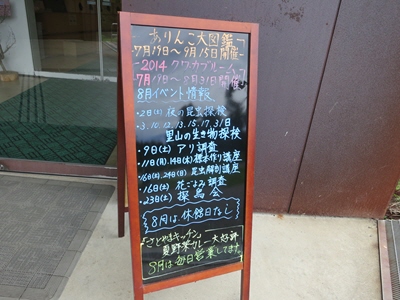 ありんこ大図鑑
7月19日～9月15日開催
2014 クワカブルーム
7月19日～8月31日開催
8月イベント情報
・2日(土) 夜の昆虫探検
・3.10.12.13.15.17.31日
里山の生き物探検
・9日(土) アリ調査
・11日(月).14日(木) 標本作り講座
・16日(土).24日(日) 昆虫解剖講座
・16日(土) 花ごよみ調査
・23日(土) 探鳥会
8月は休館日なし
「さとやまキッチン」
夏野菜カレー大好評
8月は毎日営業してます。